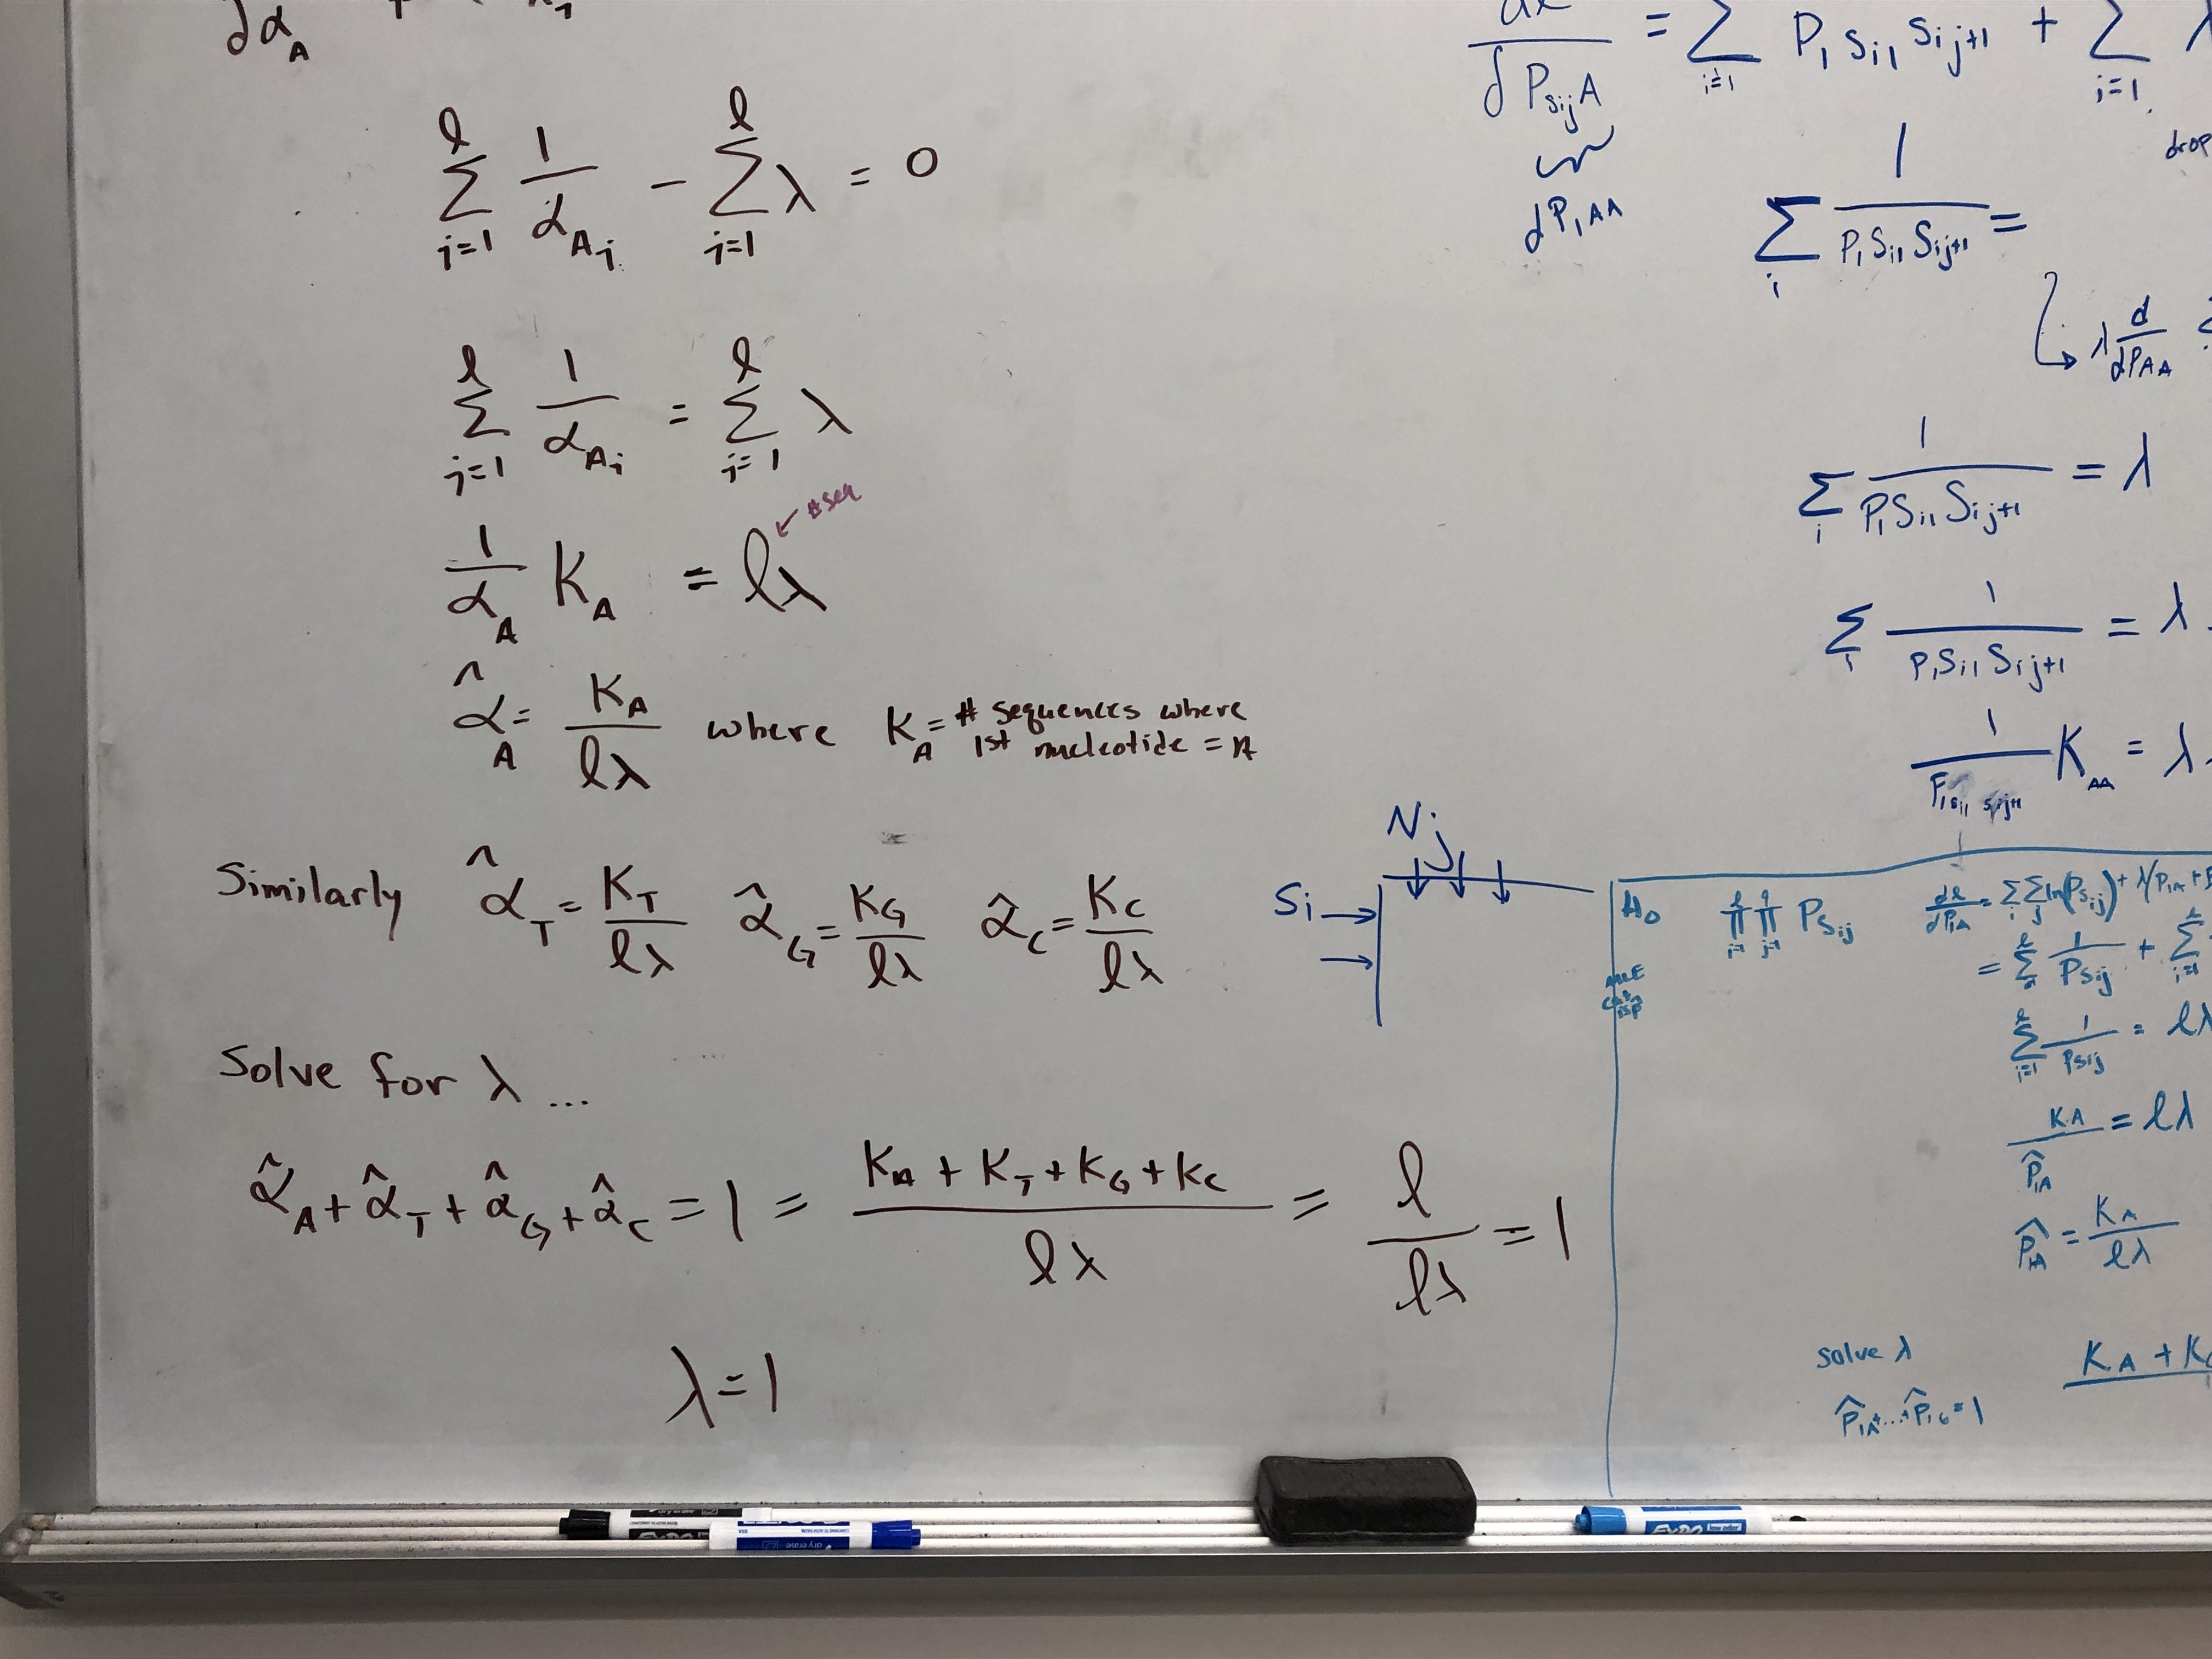 ∂α_A
∑_{i=1}^{l} 1/α_{A_i} − ∑_{i=1}^{l} λ = 0
∑_{i=1}^{l} 1/α_{A_i} = ∑_{i=1}^{l} λ
# seq
1/α_A K_A = lλ
α̂_A = K_A/lλ where K_A = # sequences where
1st nucleotide = A
Similarly α̂_T = K_T/lλ α̂_G = K_G/lλ α̂_C = K_C/lλ
Solve for λ ...
α̂_A + α̂_T + α̂_G + α̂_C = 1 = (K_A + K_T + K_G + K_C)/lλ = l/lλ = 1
λ = 1
∂P_{s_{ij}A} = ∑_{i=1} P_1 s_{i1} s_{ij+1} + ∑_{i=1} λ
dP_{1AA}
drop
∑_i 1/(P_1 s_{i1} s_{ij+1}) =
λ d/dP_{AA}
∑_i 1/(P_1 s_{i1} s_{ij+1}) = λ
∑_i 1/(P_1 s_{i1} s_{ij+1}) = λ
1/(P_1 s_{i1} s_{ij+1}) K_{AA} = λ
N_j
S_i
H_0
∏_{i=1}^{l} ∏_{j=1} P_{s_{ij}}
dl/dP_{1A} = ∑_i ∑_j ln(P_{s_{ij}}) + λ(P_{1A} +
= ∑ 1/P_{s_{ij}} + ∑_{i=1}
∑_{i=1}^{l} 1/P_{s_{ij}} = lλ
K_A/P̂_{1A} = lλ
P̂_{1A} = K_A/lλ
solve λ
K_A + K_C
P̂_{1A} + ... + P̂_{1G} = 1
EXPO
dry erase
EXPO low odor